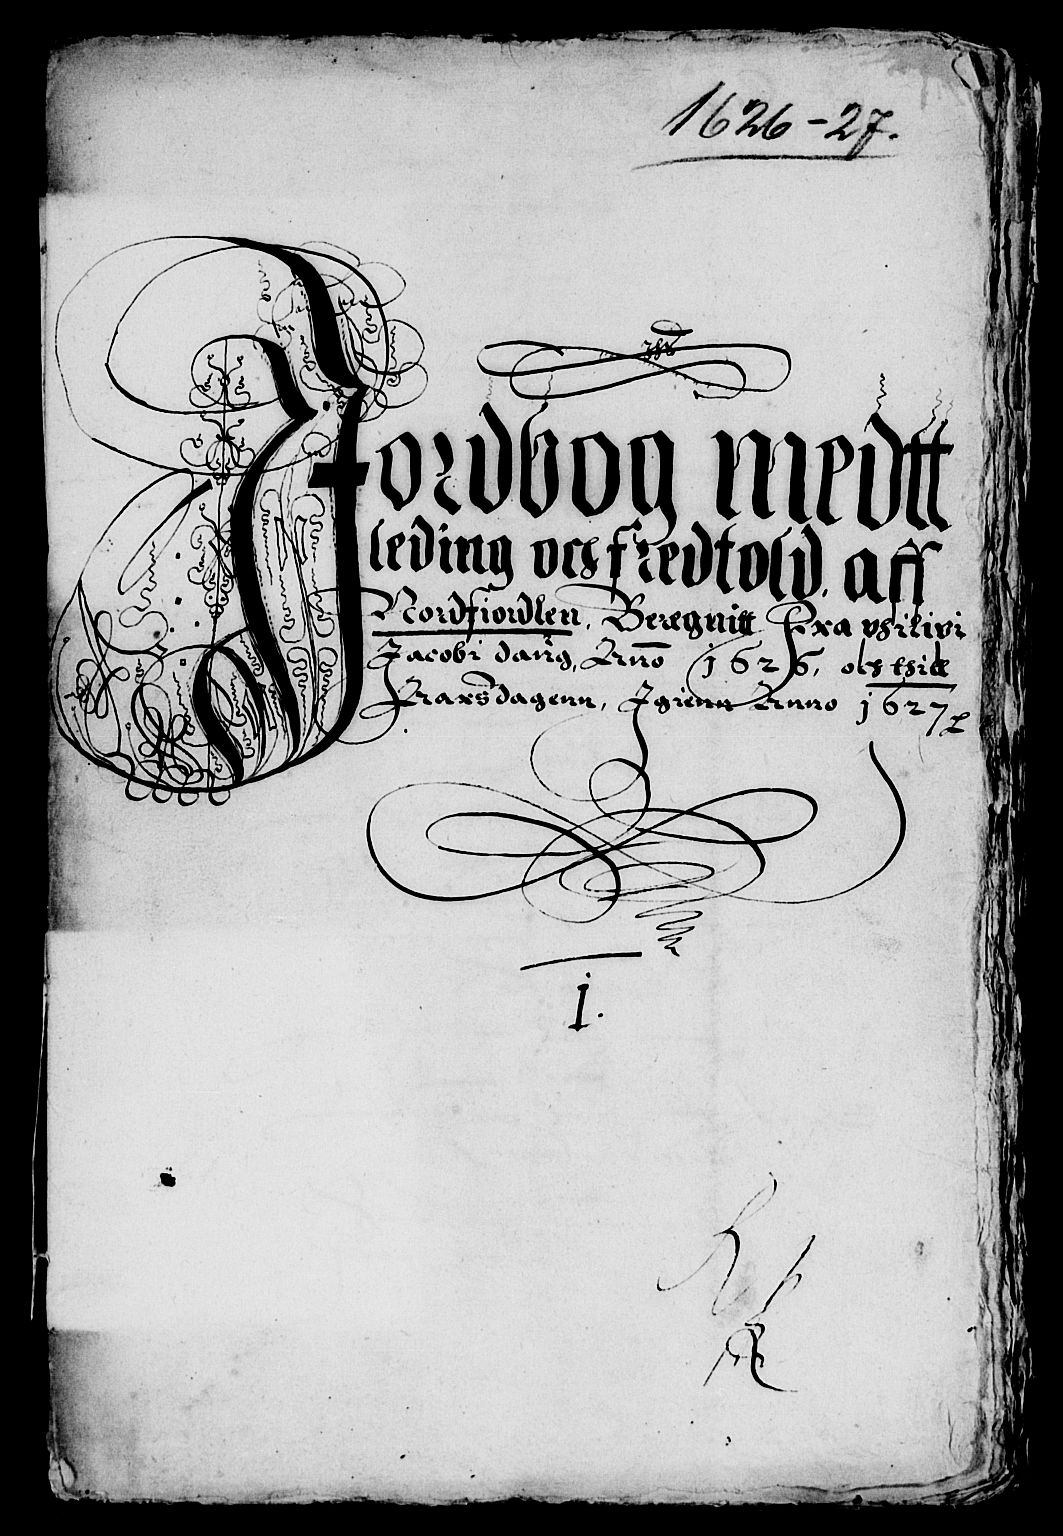 1626-27.
Jordbog medtt
leding och fredtold. aff
Nordfiordlen, Beregnitt Fra
Jacobi daug, Anno 1626, och thill
Aarsdagenn, Igienn Anno 1627
1.